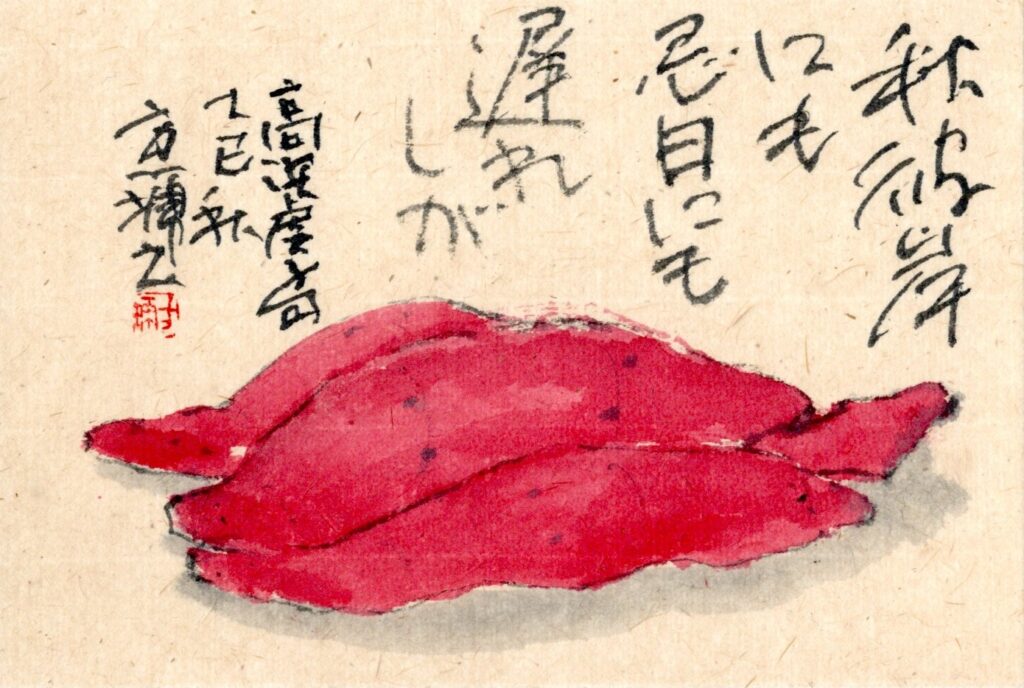 秋彼岸
にも
忌日にも
遅れ
しが
高浜虚子句
乙巳秋